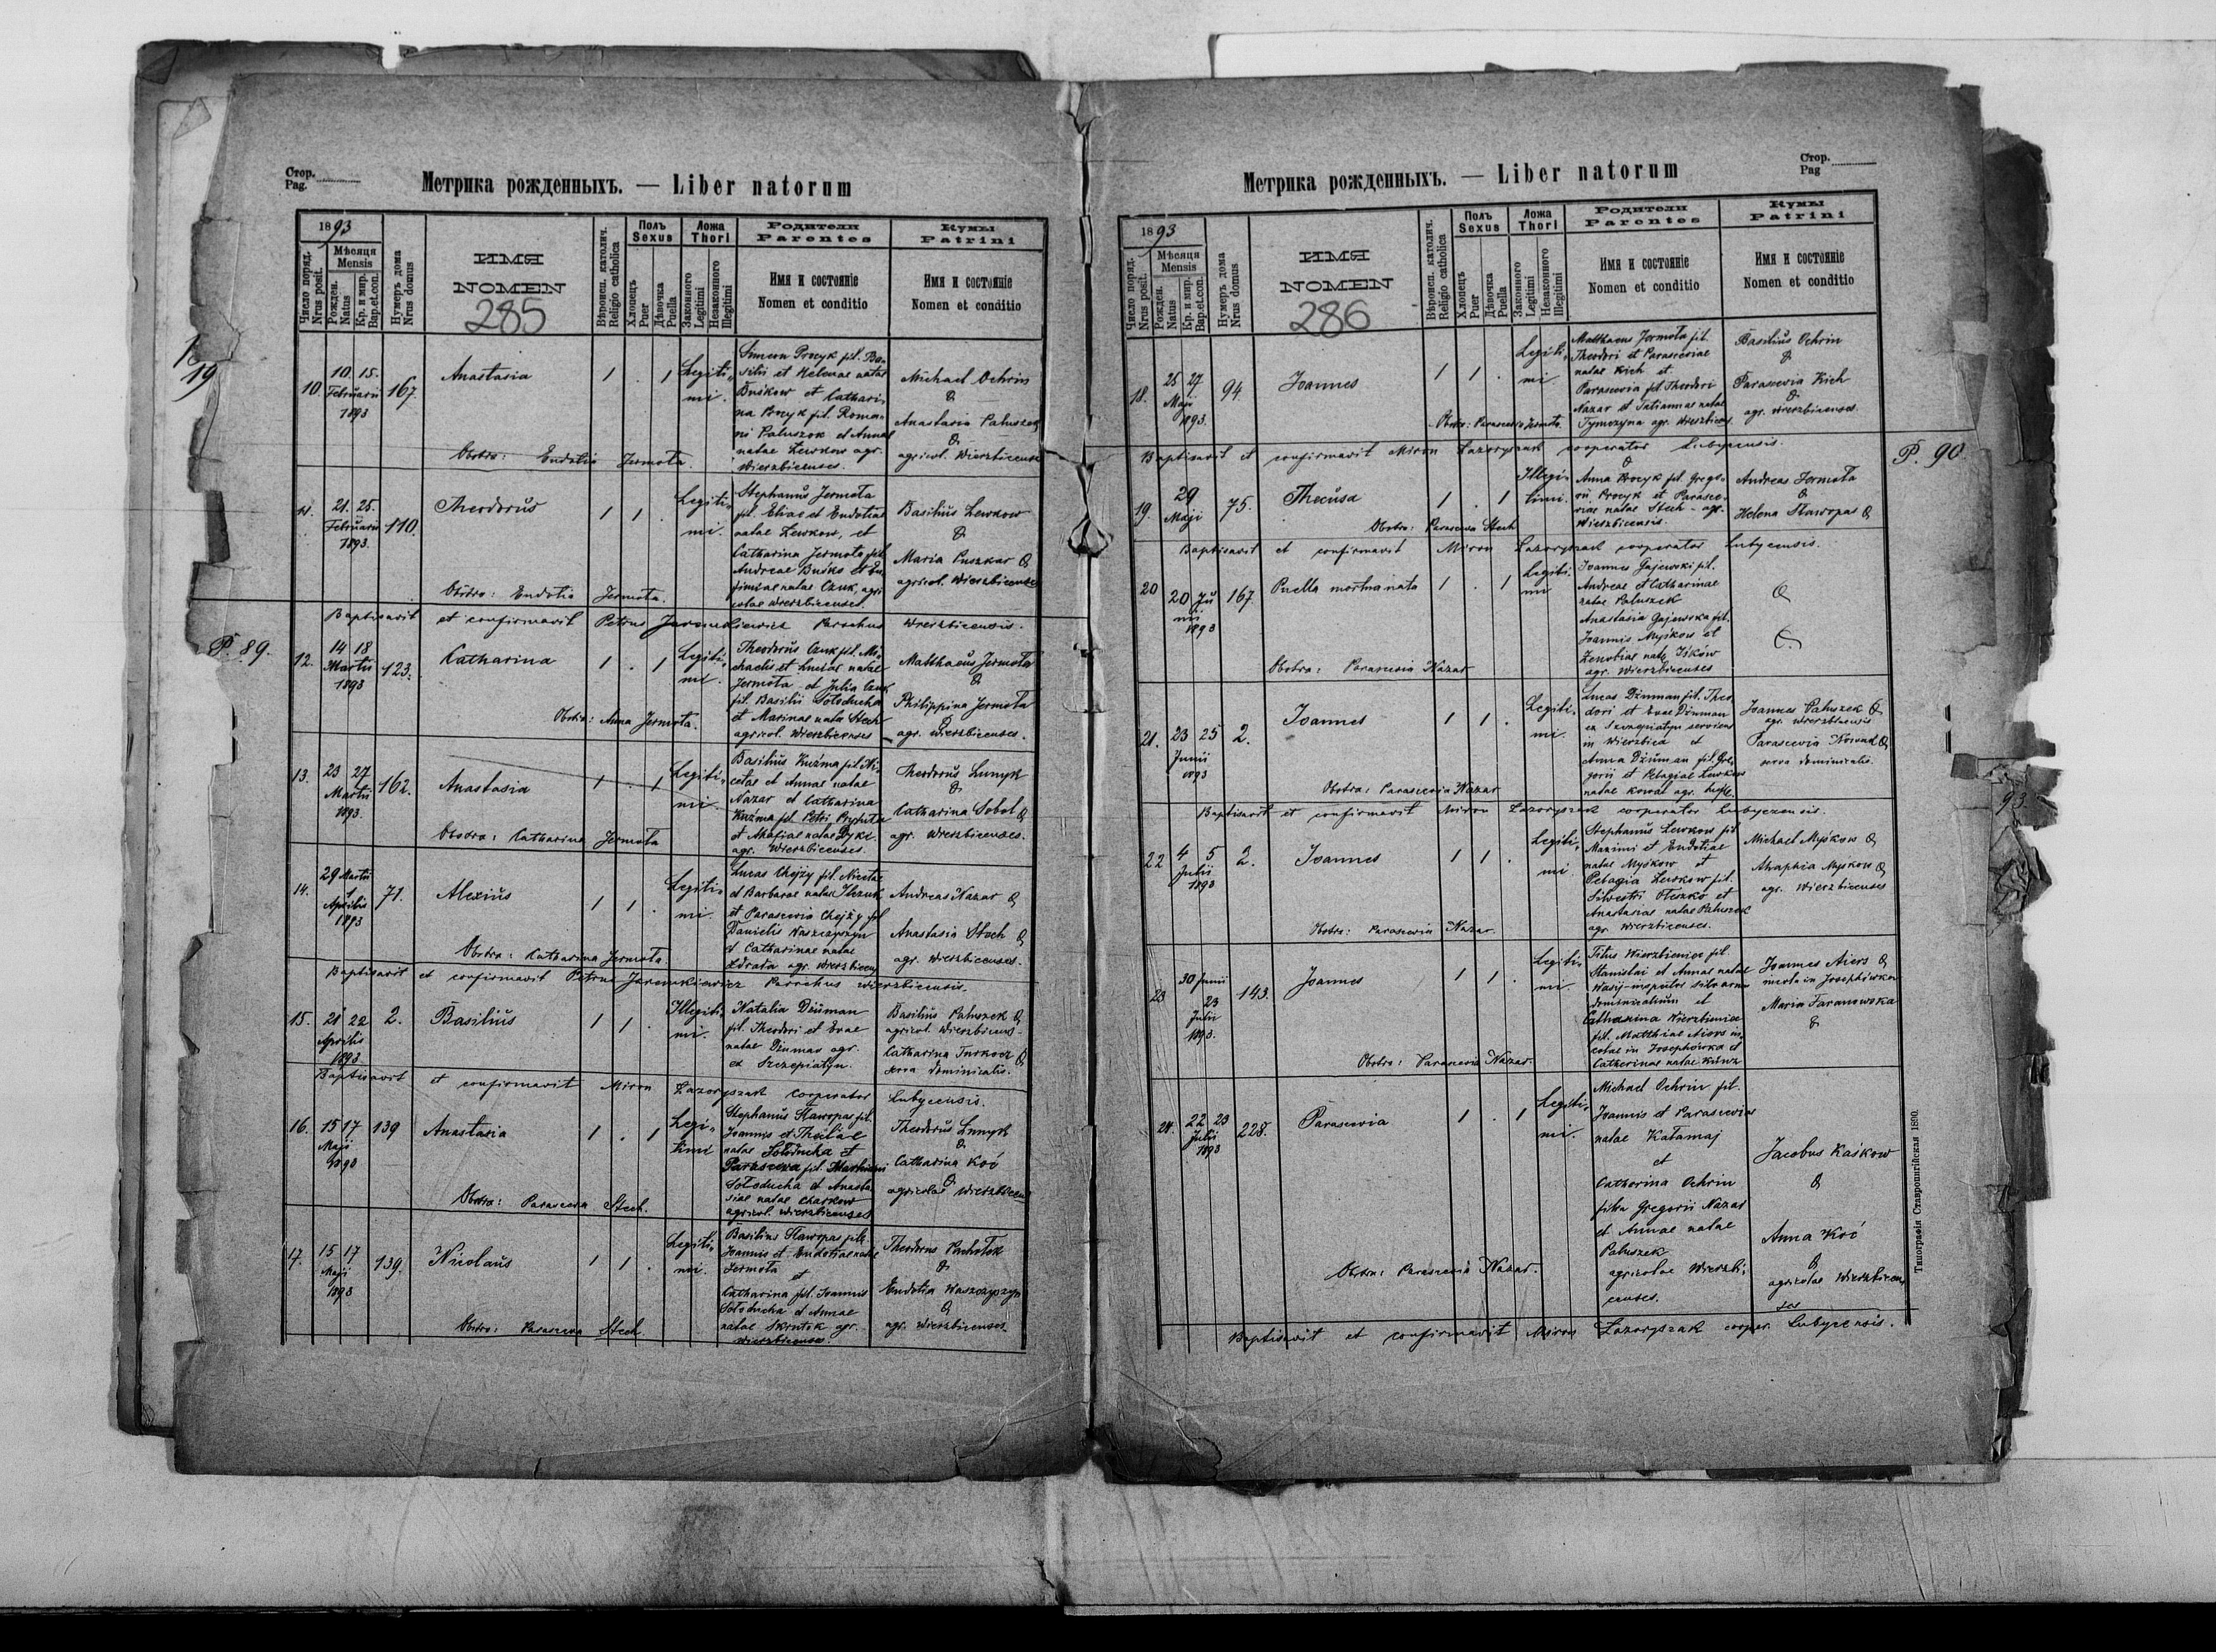 Стор.
Pag.
Метрика рожденныхъ. — Liber natorum
1893
Число поряд.
Nrus posit.
Мѣсяця
Mensis
Рожден.
Natus
Кр. и мир.
Bap.et.con.
Нумеръ дома
Nrus domus
ИМЯ
NOMEN
285
Вѣроисп. католич.
Religio catholica
Полъ
Sexus
Хлопецъ
Puer
Дѣвочка
Puella
Ложа
Thori
Законного
Legitimi
Незаконного
Illegitimi
Родители
Parentes
Имя и состояніе
Nomen et conditio
Кумы
Patrini
Имя и состояніе
Nomen et conditio
19
10. 10. 15. Februarii 1893 167. Anastasia 1 . 1 Legitimi.
Simeon Procyk fil. Ba-
silii et Helenae natae
Buśkow et Cathari-
na Procyk fil. Roma-
ni Paluszok et Annae
natae Lewkow agr.
Wierzbicenses.
Michael Ochrin
&
Anastasia Paluszek
&
agricol. Wierzbicenses
Obstra: Eudotia Jermota.
11. 21. 25. Februarii 1893. 110. Theodorus 1 1 . Legitimi.
Stephanus Jermota
fil. Eliae et Eudotiae
natae Lewkow, et
Catharina Jermota fil.
Andreae Buśko et Eu-
fimiae natae Czuk, agri-
colae Wierzbicenses.
Basilius Lewkow
&
Maria Puszkar &
agricol. Wierzbicenses
Obstra: Eudotia Jermota.
Baptisavit et confirmavit Petrus Jaremkiewicz Parochus Wierzbicensis.
P. 89.
12. 14 18 Martii 1893 123. Catharina 1 . 1 Legitimi.
Theodorus Czuk fil. Mi-
chaelis et Luciae natae
Jermota et Julia Czuk
fil. Basilii Sołoducha
et Marinae natae Stech
agricol. Wierzbicenses
Matthaeus Jermota
&
Philippina Jermota
&
agr. Wierzbicenses.
Obstra: Anna Jermota.
13. 23 27 Martii 1893. 162. Anastasia 1 . 1 Legitimi.
Basilius Kuźma fil. Ni-
cetae et Annae natae
Nazar et Catharina
Kuźma fil. Petri
et natae Dyki
agr. Wierzbicenses.
Theodorus Lunyk
&
Catharina Sobol &
agr. Wierzbicenses.
Obstra: Catharina Jermota
14. 29 Martii 1 Aprilis 1893 71. Alexius 1 1 . Legitimi.
Lucas Chejzy fil. Nicetae
et Barbarae natae
et Parascevia Chejzy fil
Danielis Waszczyszyn
et Catharinae natae
Zdrada agr. Wierzbicen.
Andreas Nazar &
Anastasia Stech &
agr. Wierzbicenses.
Obstra: Catharina Jermota
Baptisavit et confirmavit Petrus Jaremkiewicz Parochus Wierzbicensis.
15. 21 22 Aprilis 1893 2. Basilius 1 1 . Illegitimi.
Natalia Dziuman
fil. Theodori et Evae
natae Dziuman agr.
ex Szczepiatyn.
Basilius Paluszek &
agricol. Wierzbicens-
Catharina Turkocz &
serva dominicalis.
Baptisavit et confirmavit Miron Lazoryszak cooperator Lubycensis.
16. 15 17 Maji 1893 139 Anastasia 1 . 1 Legitimi
Stephanus Stawropas fil.
Joannis et Thecliae
natae Sołoducha et
Parascevia fil.
Sołoducha et Anasta-
siae natae Charkow
agricol. Wierzbicenses
Theodorus Lunyk
&
Catharina Koć
&
agricolae Wierzbicen
Obstra: Parascevia Stech.
17. 15 17 Maji 1893 139. Nicolaus 1 1 . Legitimi.
Basilius Stawropas fil.
Joannis et Eudotiae natae
Jermota
et
Catharina fil. Joannis
Sołoducha et Annae
natae Skrutek agr.
Wierzbicenses.
Theodorus Pachołek
&
Eudotia Waszczyszyn
&
agr. Wierzbicenses.
Obstra: Parascevia Stech.
Стор.
Pag
Метрика рожденныхъ. — Liber natorum
1893
Число поряд.
Nrus posit.
Мѣсяця
Mensis
Рожден.
Natus
Кр. и мир.
Bap.et.con.
Нумеръ дома
Nrus domus
ИМЯ
NOMEN
286
Вѣроисп. католич.
Religio catholica
Полъ
Sexus
Хлопецъ
Puer
Дѣвочка
Puella
Ложа
Thori
Законного
Legitimi
Незаконного
Illegitimi
Родители
Parentes
Имя и состояніе
Nomen et conditio
Кумы
Patrini
Имя и состояніе
Nomen et conditio
18. 25 27 Maji 1893. 94 Joannes 1 1 . Legitimi
Matthaeus Jermota fil.
Theodori et Parasceviae
natae Kich et
Parascevia fil. Theodori
Nazar et Tatiannae natae
Tymczyna agr. Wierzbicen.
Basilius Ochrin
&
Parascevia Kich
&
agr. Wierzbicenses.
Obstra: Parascevia Jermota.
Baptisavit et confirmavit Miron Lazoryszak cooperator Lubycensis.
P. 90.
19. 29 Maji 75. Thecusa 1 . 1 Illegitimi.
Anna Procyk fil. Grego-
rii Procyk et Parasce-
viae natae Stech - agr.
Wierzbicensis.
Andreas Jermota
&
Helena Stawropas &
Obstra: Parascevia Stech
Baptisavit et confirmavit Miron Lazoryszak cooperator Lubycensis.
20 20 Junii 1893 167 Puella mortua nata 1 . 1 Legitimi
Joannes Gajewski fil.
Andreae et Catharinae
natae Paluszek
Anastasia Gajewska fil.
Joannis Myśkow et
Zenobiae natae Iśków
agr. Wierzbicenses
&
&
Obstra: Parascevia Nazar
21. 23 25 Junii 1893 2. Joannes 1 1 . Legitimi.
Lucas Dziuman fil. Theo-
dori et Evae Dziuman
ex Szczepiatyn serviens
in Wierzbica et
Anna Dziuman fil. Gre-
gorii et Pelagiae Lewkow
natae Kowal agr.
Joannes Paluszek &
agr. Wierzbicensis
Parascevia Nowad &
serva dominicalis.
Obstra: Parascevia Nazar
Baptisavit et confirmavit Miron Lazoryszak cooperator Lubyczensis.
93
22 4 5 Julii 1893 2. Joannes 1 1 . Legitimi
Stephanus Lewkow fil
Maximi et Eudotiae
natae Myśkow et
Pelagia Lewkow fil.
Silvestri Fleszko et
Anastasiae natae Paluszek
agr. Wierzbicenses.
Michael Myśkow &
Ahaphia Myśkow &
agr. Wierzbicenses
Obstra: Parascevia Nazar.
23 30 Junii 23 Julii 1893. 143. Joannes 1 1 . Legitimi.
Titus Wierzbieniec fil.
Stanislai et Annae natae
Wasij-inspector silvarum
dominicalium et
Catharina Wierzbieniec
fil. Matthiae Aiers in-
colae in Josephówka et
Catharinae natae Kunz
Joannes Aiers &
in Josephówka
Maria Taranowska
&
Obstra: Parascevia Nazar.
24. 22 23 Julii 1893 228. Parascevia 1 . 1 Legitimi.
Michael Ochrin fil.
Joannis et Parasceviae
natae Katamaj
et
Catharina Ochrin
filia Gregorii Nazar
et Annae natae
Paluszek
agricolae Wierzbi-
censes.
Jacobus Kaśkow
&
Anna Koć
&
agricolae Wierzbicen-
ses
Obstra: Parascevia Nazar.
Baptisavit et confirmavit Miron Lazoryszak cooper. Lubycensis.
Типографія Ставропигійская 1890.